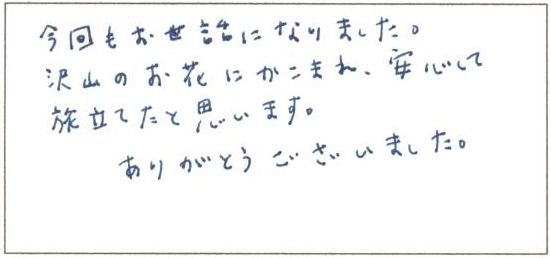 今回もお世話になりました。
沢山のお花にかこまれ、安心して
旅立てたと思います。
ありがとうございました。